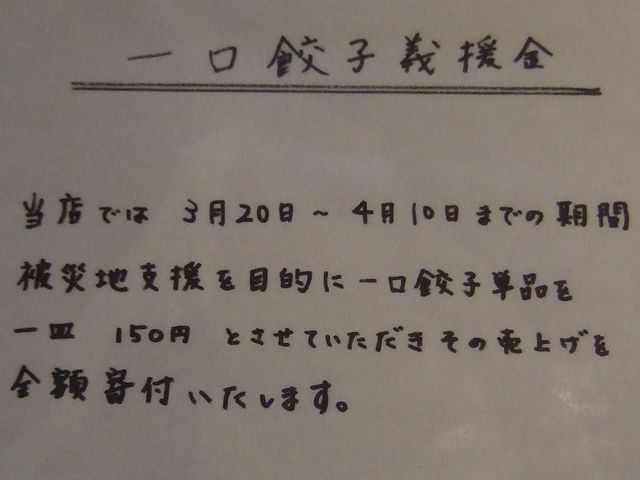 一口餃子義援金
当店では 3月20日～4月10日までの期間
被災地支援を目的に一口餃子単品を
一皿 150円 とさせていただきその売上げを
全額寄付いたします。